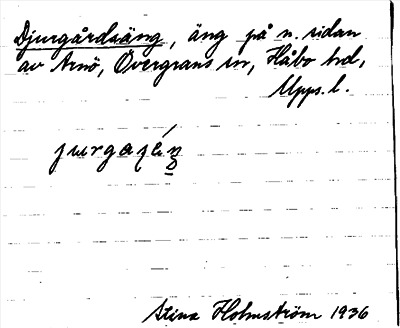 Djurgårdsäng, äng på n. sidan
av Arnö, Övergrans sn, Håbo hd,
Upps. l.
Stina Holmström 1936